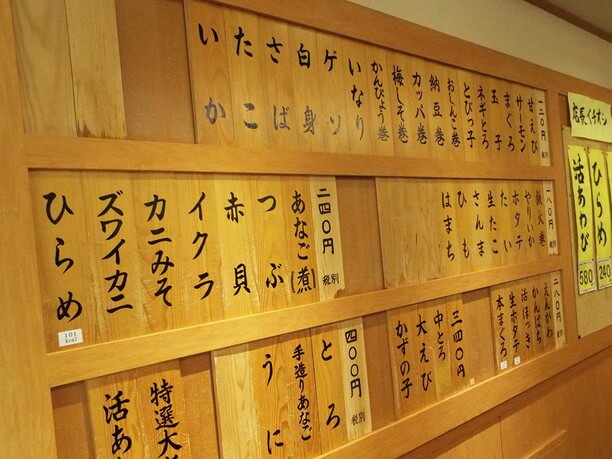 一二〇円 税別
甘えび
サーモン
まぐろ
玉子
ネギとろ
とびっ子
おしんこ巻
納豆巻
カッパ巻
梅しそ巻
かんぴょう巻
いなり
ゲソ
白身
さば
たこ
いか
一八〇円 税別
鉄火巻
やりいか
ホタテ
たい
生たこ
さんま
ひも
はまち
二四〇円 税別
あなご(煮)
つぶ
赤貝
イクラ
カニみそ
ズワイカニ
ひらめ
101 kcal
二八〇円 税別
えんがわ
かんぱち
活ほっき
生ホタテ
本まぐろ
三四〇円
中とろ
大えび
かずの子
四〇〇円 税別
とろ
手造りあなご
うに
特選大
活あ
店長イチオシ
ひらめ 240
活あわび 580